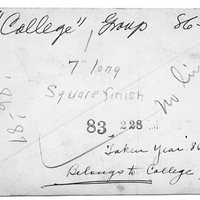 "College", Group 86-
7" long
Square finish
no
83 228
'Taken Year' 86
Belongs to College